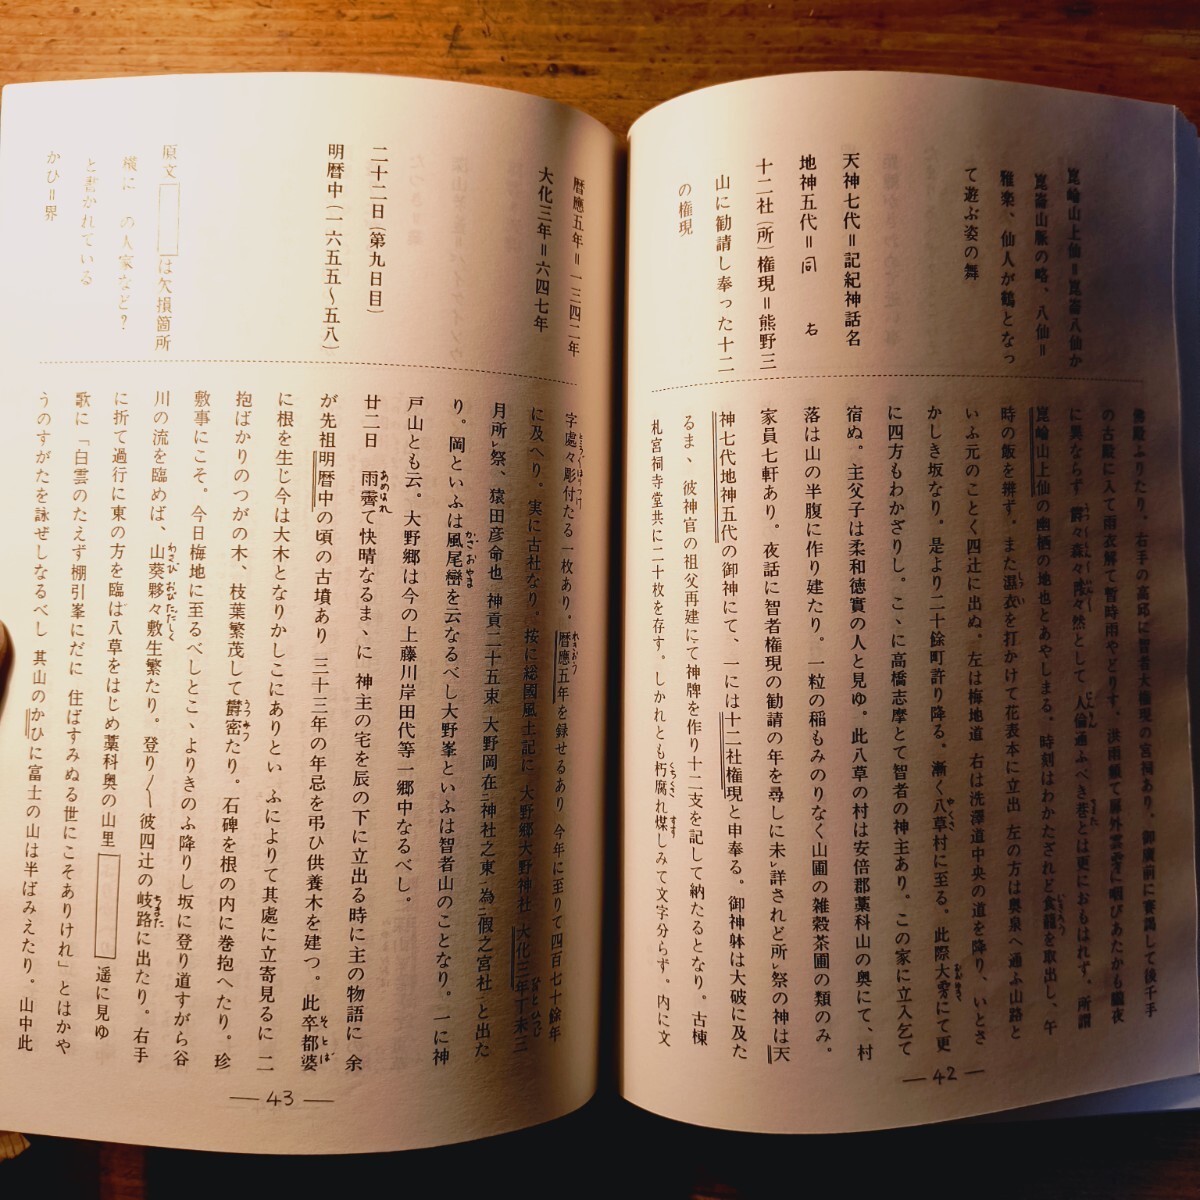 崑崘山上仙＝崑崙八仙か
崑崙山脈の略、八仙＝
雅楽、仙人が鶴となっ
て遊ぶ姿の舞
天神七代＝記紀神話名
地神五代＝同　右
十二社（所）権現＝熊野三
山に勧請し奉った十二
の権現
佛殿ふりたり、右手の高邱に智者大権現の宮祠あり、御廣前に賽謁して後千手
の古殿に入て雨衣解て暫時雨やどりす、洪雨頻て扉外雲霧に咽びあたかも朧夜
に異ならず 欝々森々陰々然として 人倫通ふべき巷とは更におもはれず、所謂
崑崘山上仙の幽栖の地也とあやしまる、時刻はわかたざれど食籠を取出し、午
時の飯を拼ず。また濕衣を打かけて花表本に立出 左の方は奥泉へ通ふ山路と
いふ元のことく四辻に出ぬ。左は梅地道 右は洗澤道中央の道を降り、いとさ
かしき坂なり。是より二十餘町許り降る。漸く八草村に至る。此際大雾にて更
に四方もわかざりし。こゝに高橋志摩とて智者の神主あり。この家に立入乞て
宿ぬ。主父子は柔和德實の人と見ゆ。此八草の村は安倍郡藁科山の奥にて、村
落は山の半腹に作り建たり。一粒の稲もみのりなく山圃の雑穀茶圃の類のみ。
家員七軒あり。夜話に智者権現の勧請の年を尋しに未レ詳されど所レ祭の神は天
神七代地神五代の御神にて、一には十二社権現と申奉る。御神躰は大破に及た
るまゝ彼神官の祖父再建にて神牌を作り十二支を記して納たるとなり。古棟
札宮祠寺堂共に二十枚を存す。しかれとも朽腐れ煤しみて文字分らず。内に文
— 42 —
暦應五年＝一三四二年
大化三年＝六四七年
二十二日（第九日目）
明暦中（一六五五〜五八）
原文　　は欠損箇所
横に　の人家など？
と書かれている
かひ＝界
字處々彫付たる一枚あり。暦應五年を録せるあり 今年に至りて四百七十餘年
に及へり。実に古社なり。按に総國風土記に 大野郷大野神社 大化三年丁未三
月所レ祭、猿田彦命也 神貢二十五束 大野岡在ニ神社之東一為ニ假之宮社一と出た
り。岡といふは風尾巒を云なるべし大野峯といふは智者山のことなり。一に神
戸山とも云。大野郷は今の上藤川岸田代等一郷中なるべし。
廿二日　雨霽て快晴なるまゝに 神主の宅を辰の下に立出る時に主の物語に 余
が先祖明暦中の頃の古墳あり 三十三年の年忌を弔ひ供養木を建つ。此卒都婆
に根を生じ今は大木となりかしこにありとい ふによりて其處に立寄見るに 二
抱ばかりのつがの木、枝葉繁茂して欝密たり。石碑を根の内に巻抱へたり。珍
敷事にこそ。今日梅地に至るべしとこゝよりきのふ降りし坂に登り道すがら谷
川の流を臨めば、山葵夥々敷生繁たり。登り〱彼四辻の岐路に出たり。右手
に折て過行に東の方を臨は八草をはじめ藁科奥の山里　　　遥に見ゆ
歌に「白雲のたえず棚引峯にだに 住ばすみぬる世にこそありけれ」とはかや
うのすがたを詠ぜしなるべし 其山のかひに富士の山は半ばみえたり。山中此
— 43 —